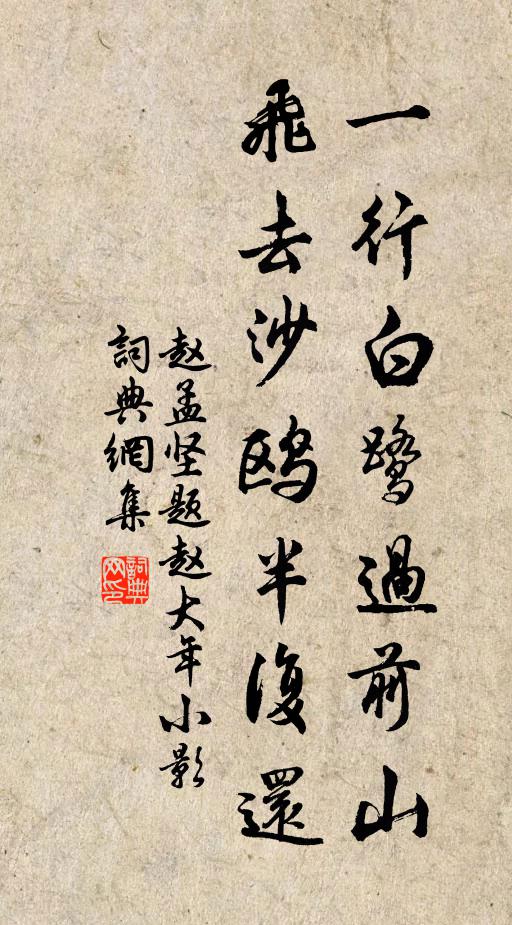 一行白鹭過前山
飛去沙鸥半復還
赵孟坚题赵大年小影
詞典網集
詞典网印